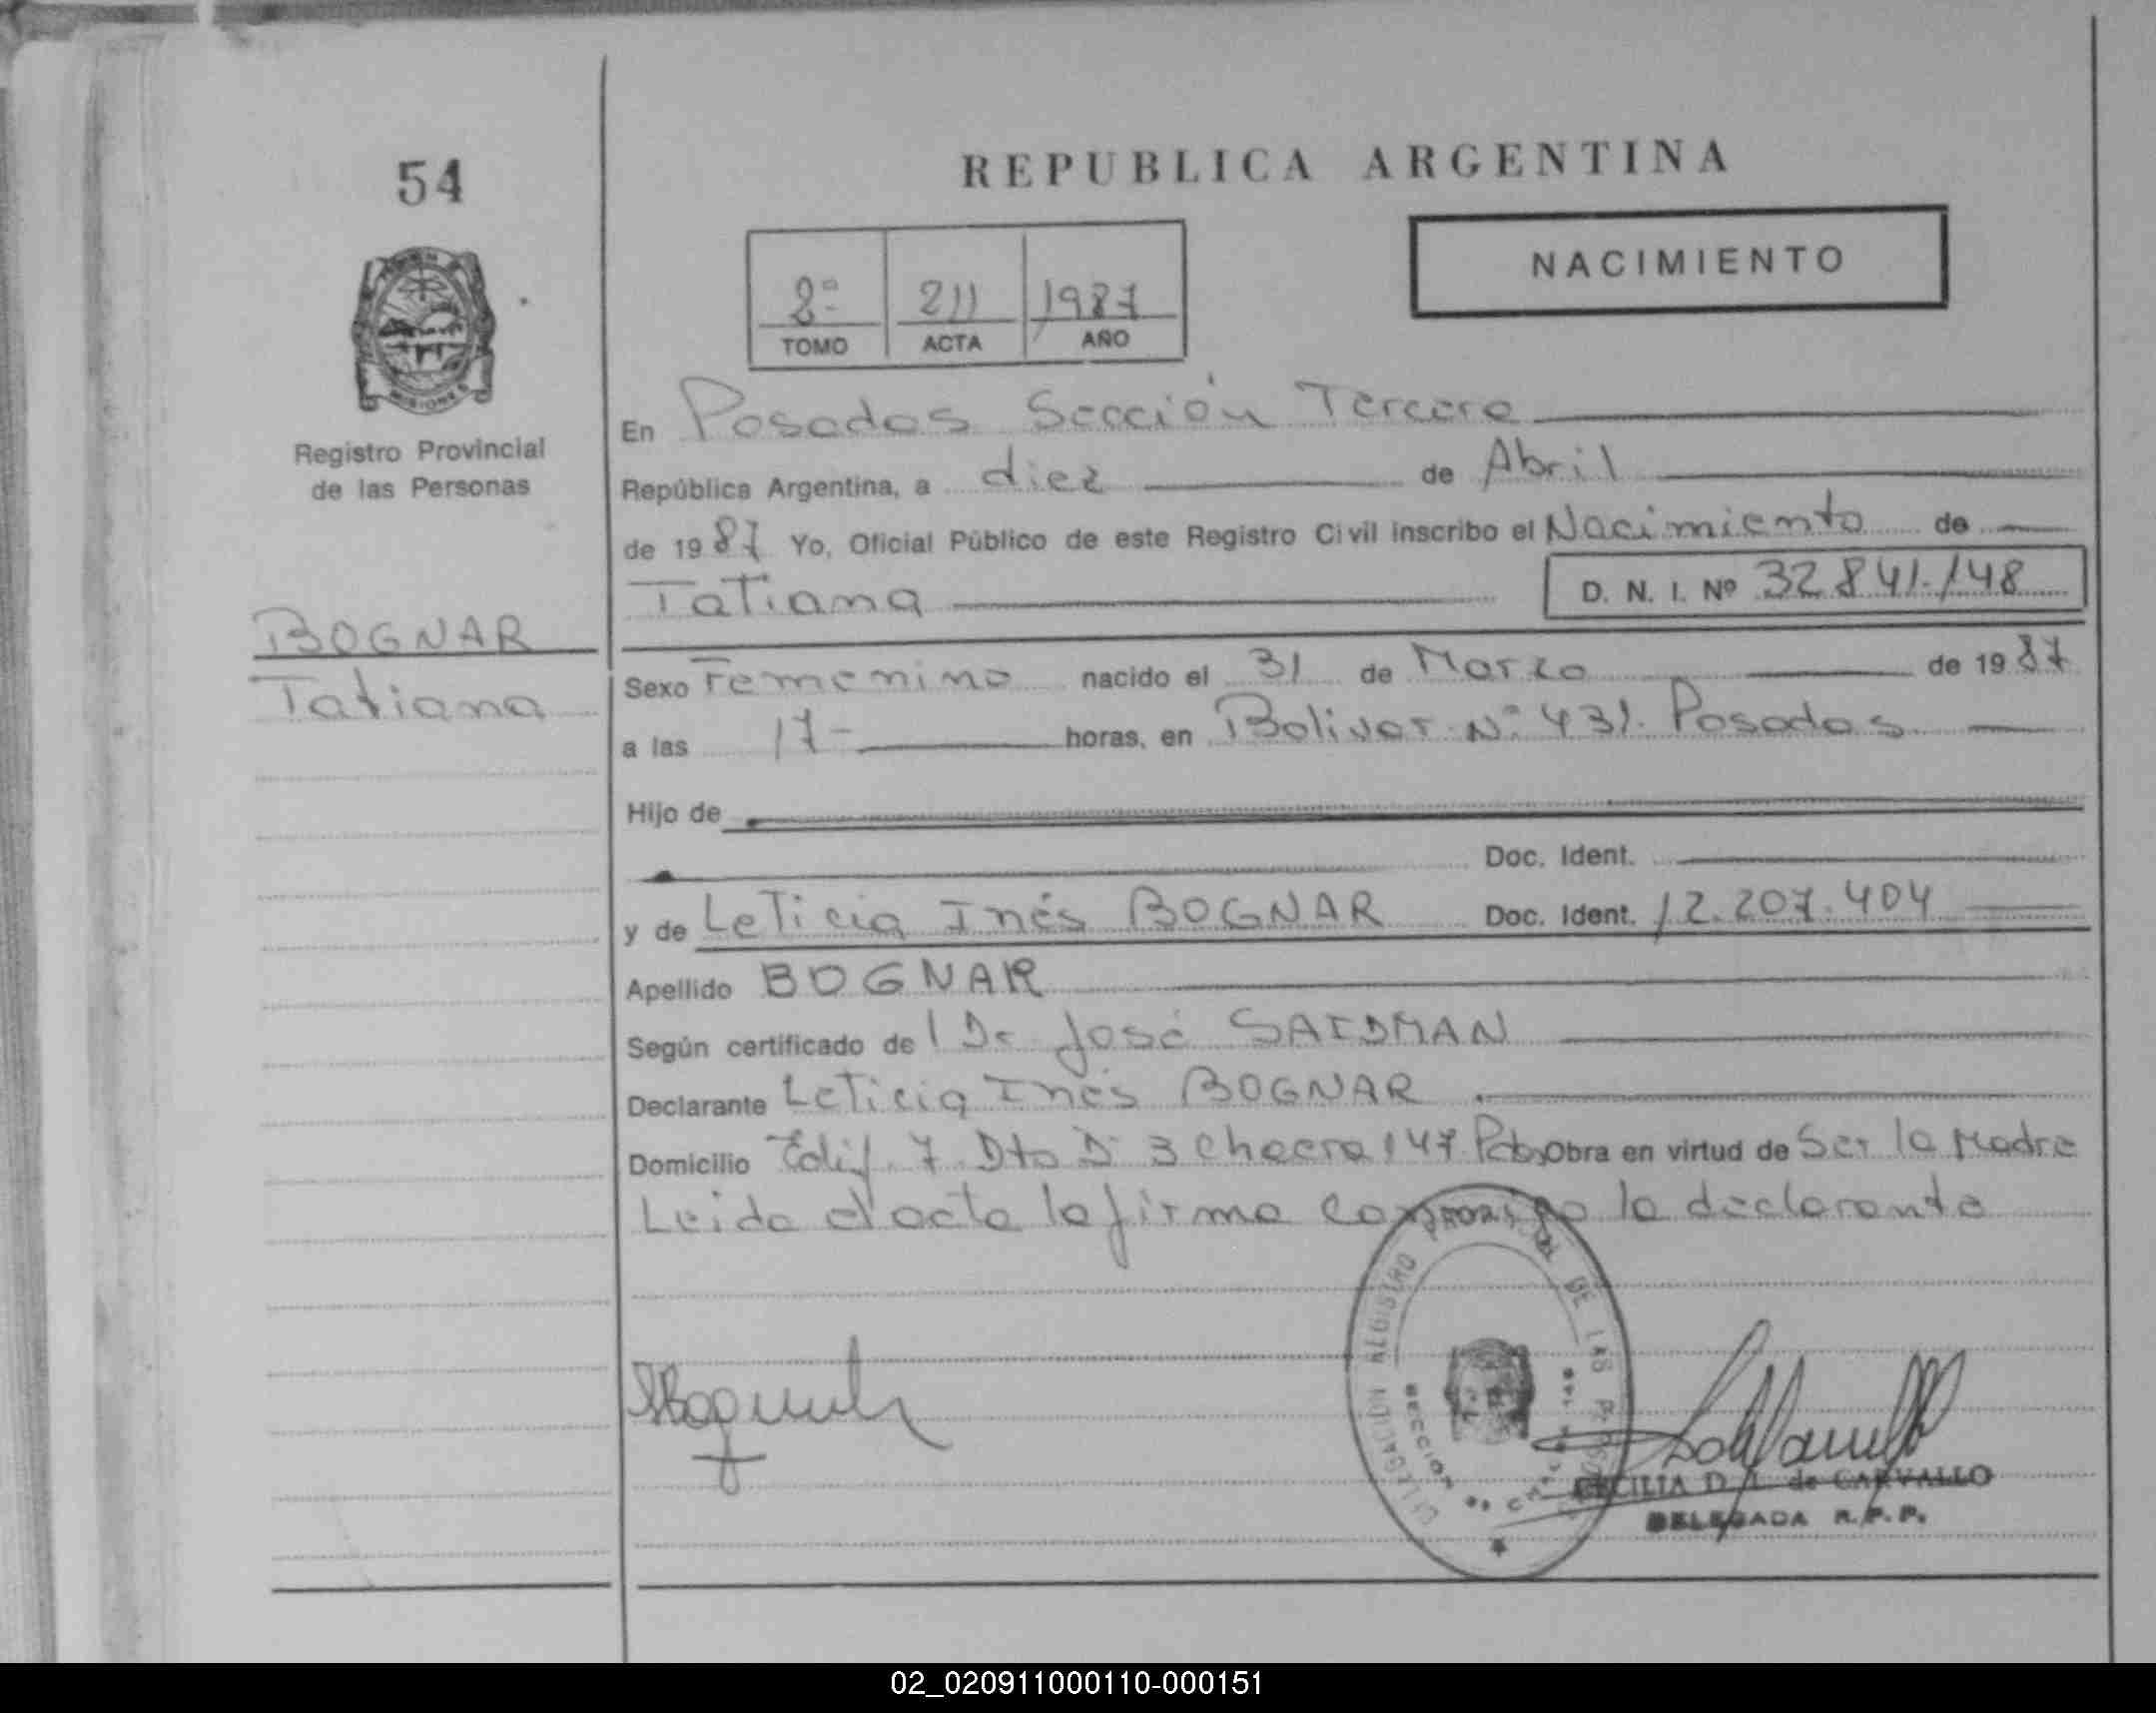 54
REPUBLICA ARGENTINA
NACIMIENTO
2º 211 1987
TOMO ACTA AÑO
MISIONES
Registro Provincial
de las Personas
En Posadas Sección Tercera
República Argentina, a diez de Abril
de 1987 Yo, Oficial Público de este Registro Civil inscribo el Nacimiento de
Tatiana D. N. I. Nº 32.841.148
BOGNAR
Tatiana
Sexo Femenino nacido el 31 de Marzo de 1987
a las 17- horas, en Bolivar Nº 431. Posadas
Hijo de
Doc. Ident.
y de Leticia Inés BOGNAR Doc. Ident. 12.207.404
Apellido BOGNAR
Según certificado del Dr José SAIDMAN
Declarante Leticia Inés BOGNAR
Domicilio Edif. 7 Dto D 3 Chacra 147 Obra en virtud de Ser la Madre
Leida el acta la firma conmigo la declarante
DELEGACION REGISTRO PROVINCIAL DE LAS PERSONAS
SECCION
CECILIA D. L. de CARVALLO
DELEGADA R.P.P.
02_020911000110-000151